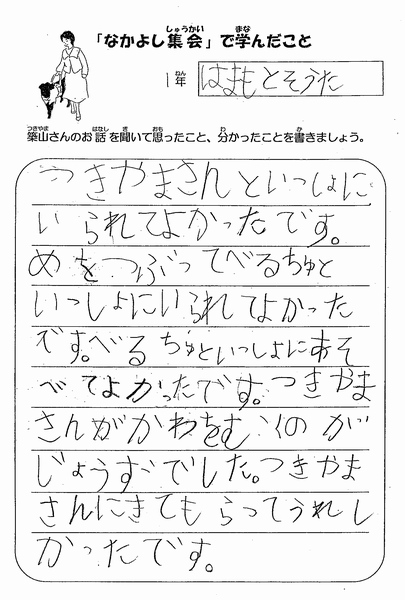 「なかよし集会」で学んだこと
1年 はまもとそうた
築山さんのお話を聞いて思ったこと、分かったことを書きましょう。
つきやまさんといっしょに
いられてよかったです。
めをつぶってべるちゅと
いっしょにいられてよかった
です。べるちゅといっしょにあそ
べてよかったです。つきやま
さんがかわをむくのが
じょうずでした。つきやま
さんにきてもらってうれし
かったです。